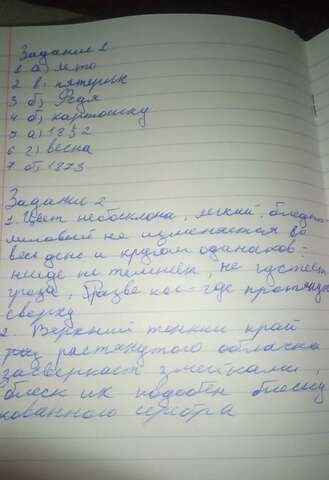 Задание 1
1 а) лето
2 в) пятерик
3 б) Федя
4 б) картошку
5 а) 1852
6 г) весна
7 б) 1873
Задание 2
1. Цвет небосклона, легкий, бледно-
лиловый не изменяется во
весь день и кругом одинаков:
нигде не темнеет, не густеет
гроза, Разве кое-где протянутся
сверху
2. Верхний тонкий край
растянутого облачка
засверкает змейками,
блеск их подобен блеску
кованного серебра